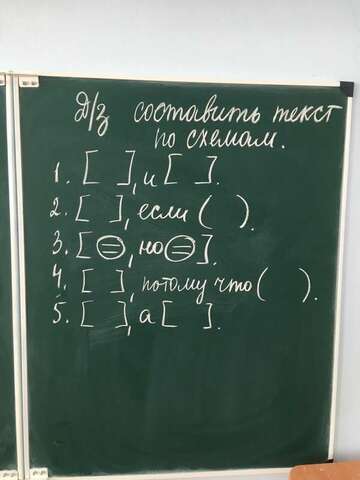 Д/з составить текст
по схемам.
1. [ ], и [ ].
2. [ ], если ( ).
3. [ ⊜, но ⊜ ].
4. [ ], потому что ( ).
5. [ ], а [ ].